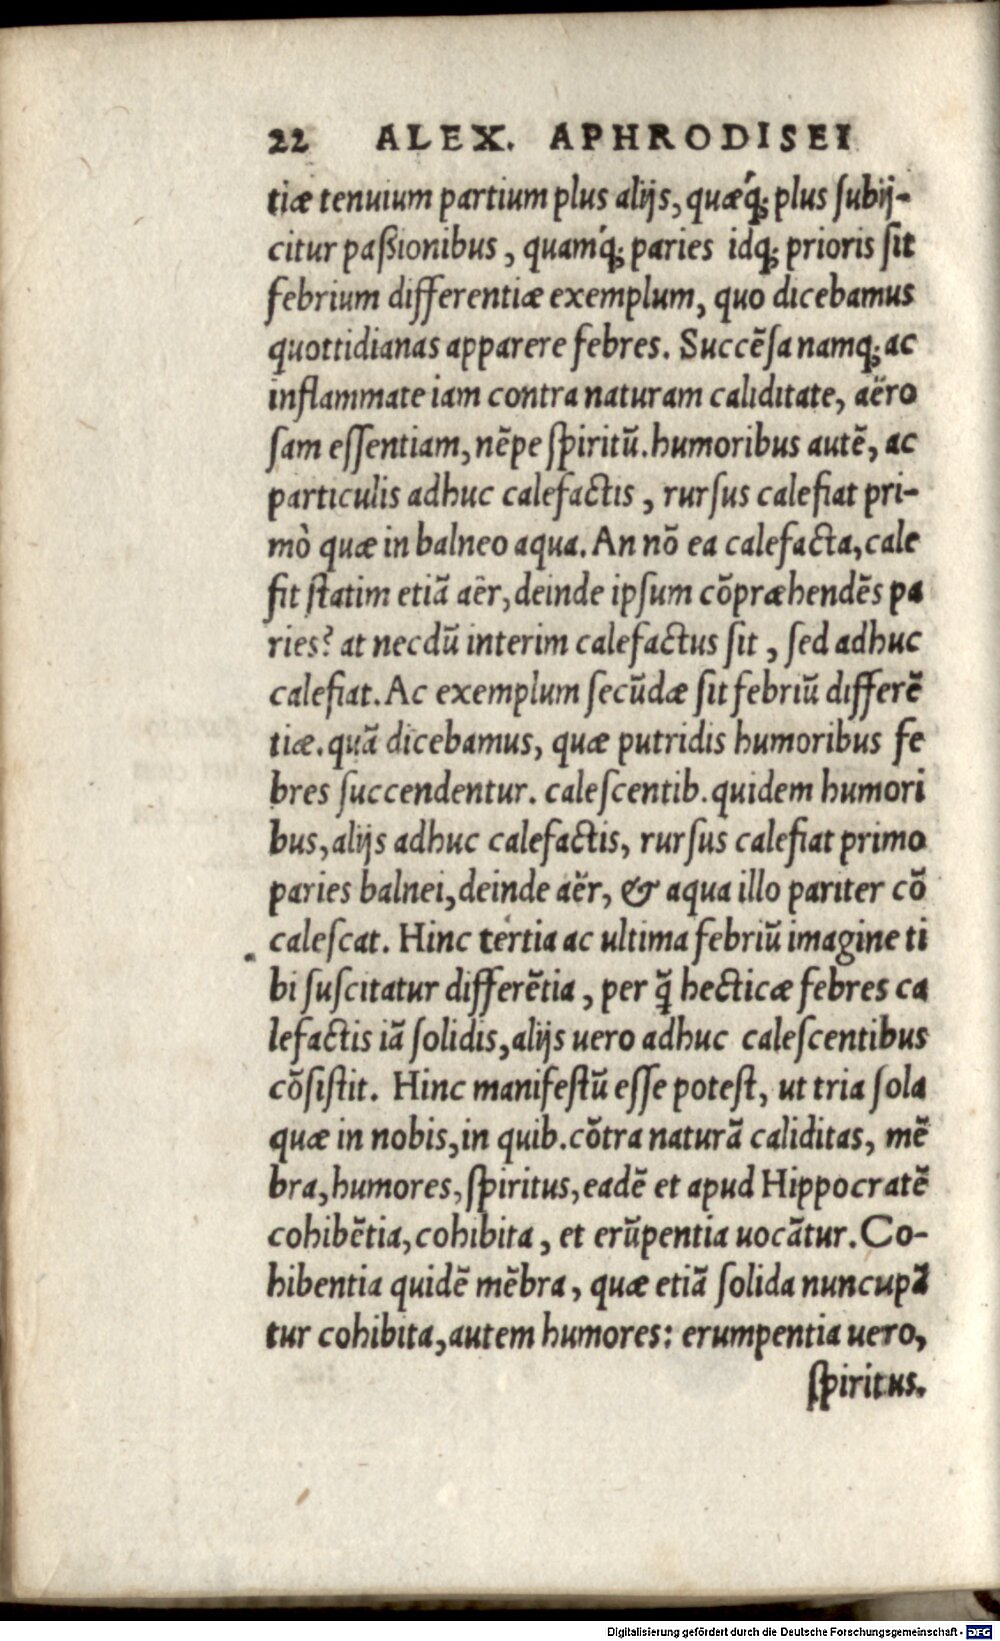 22 ALEX. APHRODISEI
tiæ tenuium partium plus alijs, quæq́; plus ſubij-
citur paßionibus, quamq́; paries idq; prioris ſit
febrium differentiæ exemplum, quo dicebamus
quottidianas apparere febres. Succẽſa namq; ac
inflammate iam contra naturam caliditate, aëro
ſam eſſentiam, nẽpe ſpiritũ. humoribus autẽ, ac
particulis adhuc calefactis, rurſus calefiat pri-
mò quæ in balneo aqua. An nõ ea calefacta, cale
fit ſtatim etiã aër, deinde ipſum cõpræhendẽs pa
ries? at necdũ interim calefactus ſit, ſed adhuc
calefiat. Ac exemplum ſecũdæ ſit febriũ differẽ
tiæ. quã dicebamus, quæ putridis humoribus fe
bres ſuccendentur. caleſcentib. quidem humori
bus, alijs adhuc calefactis, rurſus calefiat primo
paries balnei, deinde aër, & aqua illo pariter cõ
caleſcat. Hinc tertia ac ultima febriũ imagine ti
bi ſuſcitatur differẽtia, per q̃ hecticæ febres ca
lefactis iã ſolidis, alijs uero adhuc caleſcentibus
cõſiſtit. Hinc manifeſtũ eſſe poteſt, ut tria ſola
quæ in nobis, in quib. cõtra naturã caliditas, mẽ
bra, humores, ſpiritus, eadẽ et apud Hippocratẽ
cohibẽtia, cohibita, et erũpentia uocãtur. Co-
hibentia quidẽ mẽbra, quæ etiã ſolida nuncupã
tur cohibita, autem humores: erumpentia uero,
ſpiritus.
Digitalisierung gefördert durch die Deutsche Forschungsgemeinschaft - DFG